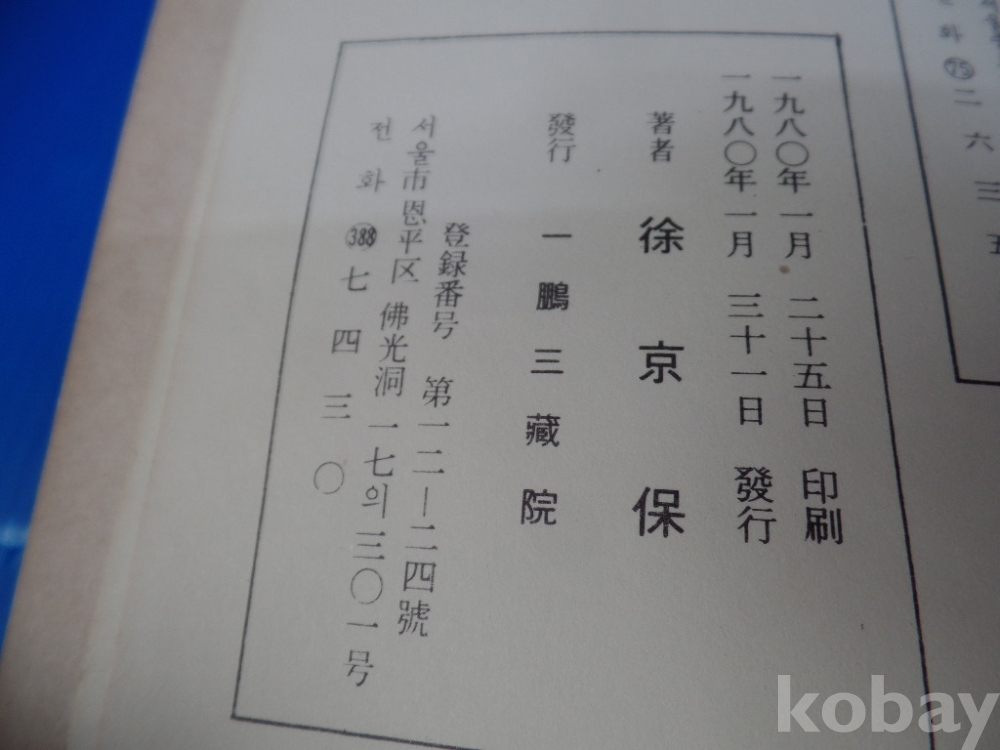 화 75 二六三五
一九八〇年 一月 二十五日 印刷
一九八〇年 一月 三十一日 發行
著者 徐京保
發行 一鵬三藏院
登録番号 第一二―二四號
서울市恩平区 佛光洞 一七의三〇一号
전화 388 七四三〇
kobay